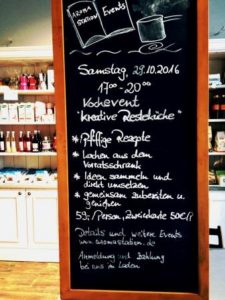 AROMA
STATION
Events
Samstag, 29.10.2016
17⁰⁰ - 20⁰⁰
Kochevent
"kreative Resteküche"
* Pfiffige Rezepte
* Kochen aus dem
Vorratsschrank
* Ideen sammeln und
direkt umsetzen
* gemeinsam zubereiten u.
genießen
59,-/Person,
50€
Details und weitere Events
www.aromastation.de
Anmeldung und Zahlung
bei uns im Laden